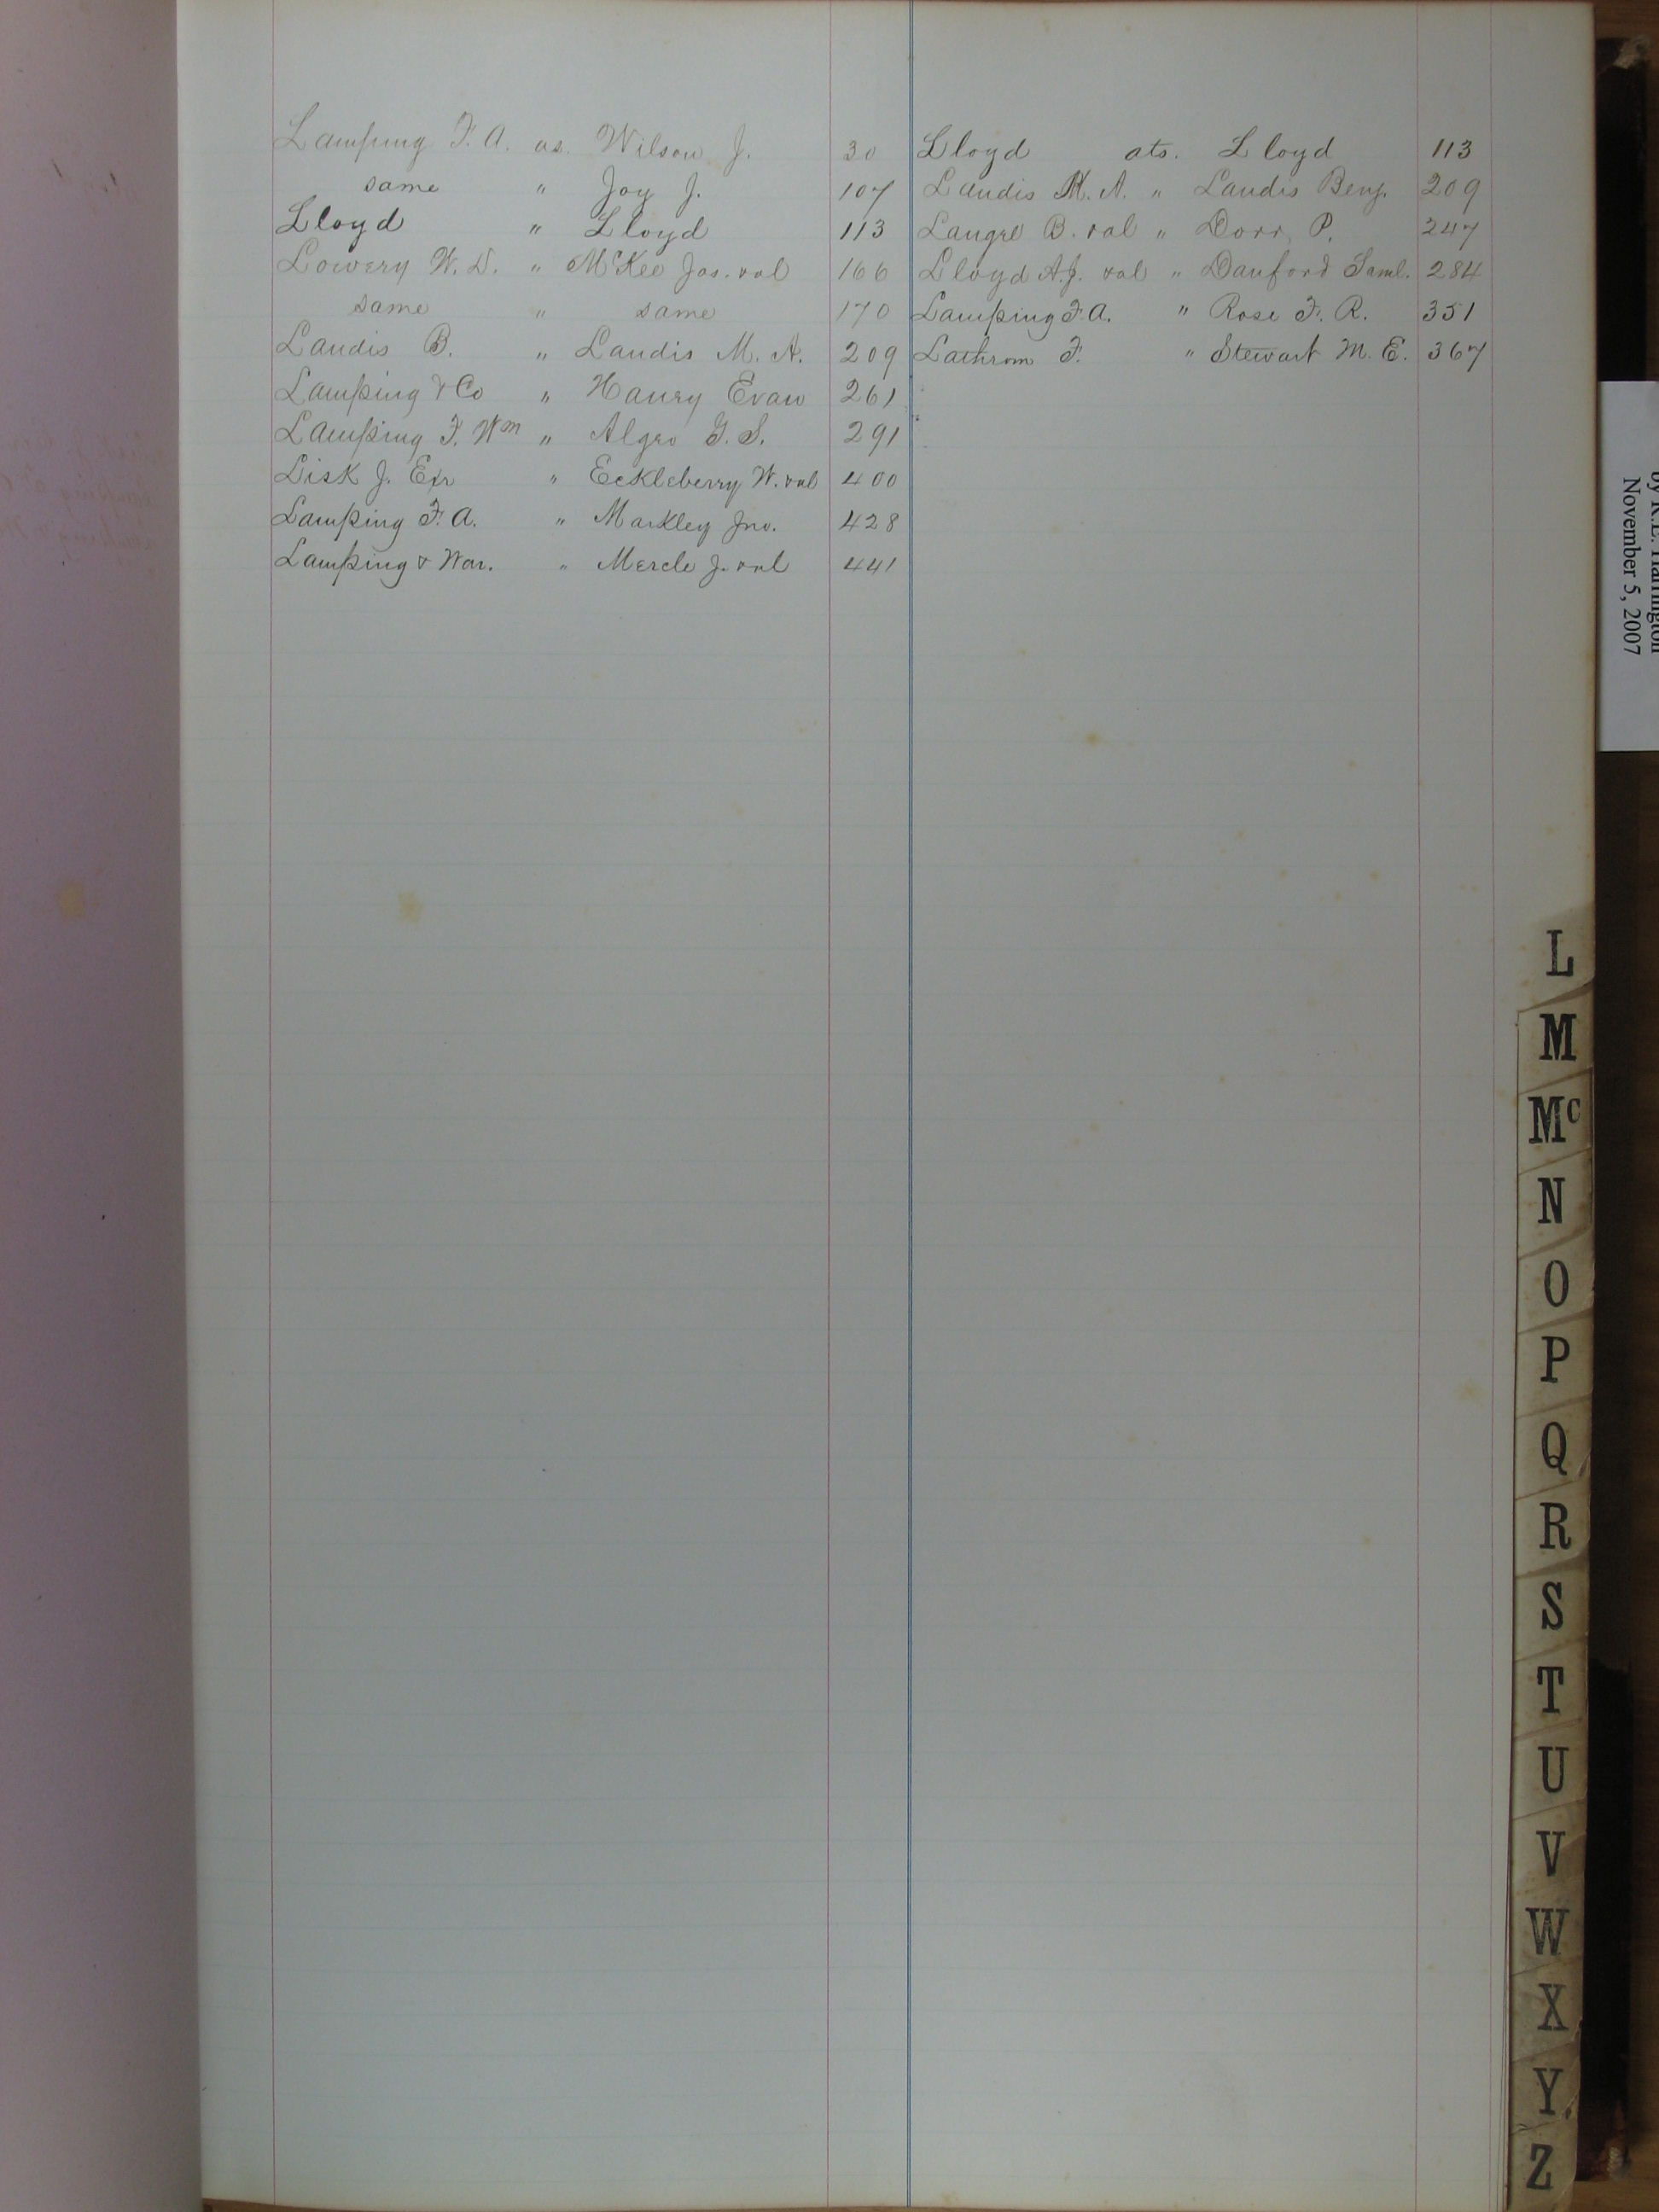 Lamping F. A. vs. Wilson J. 30
same " Joy J. 107
Lloyd " Lloyd 113
Lowery W. D. " McKee Jas. &al 166
same " same 170
Landis B. " Landis M. A. 209
Lamping & Co " Haury Evan 261
Lamping F. Wm " Algeo G. S. 291
Lisk J. Exr " Eckleberry W. &al 400
Lamping F. A. " Markley Jno. 428
Lamping & War. " Mercle J. &al 441
Lloyd ats. Lloyd 113
Landis M. A. " Landis Benj. 209
Langre B. &al " Dorr, P. 247
Lloyd A.J. &al " Danford Saml. 284
Lamping F. A. " Rose F. R. 351
Lathrom F. " Stewart M. E. 367
November 5, 2007
L
M
Mc
N
O
P
Q
R
S
T
U
V
W
X
Y
Z